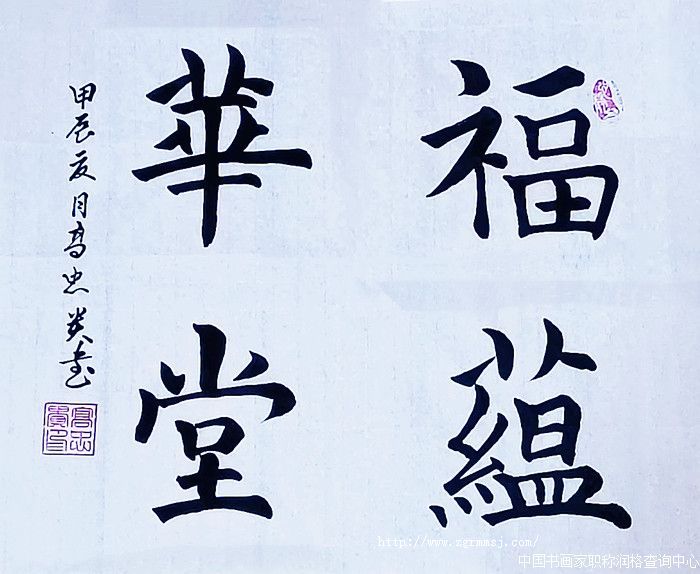 福蘊
華堂
甲辰夏月高忠貴書
高忠貴印
http://www.zgrmmsj.com/
中国书画家职称润格查询中心